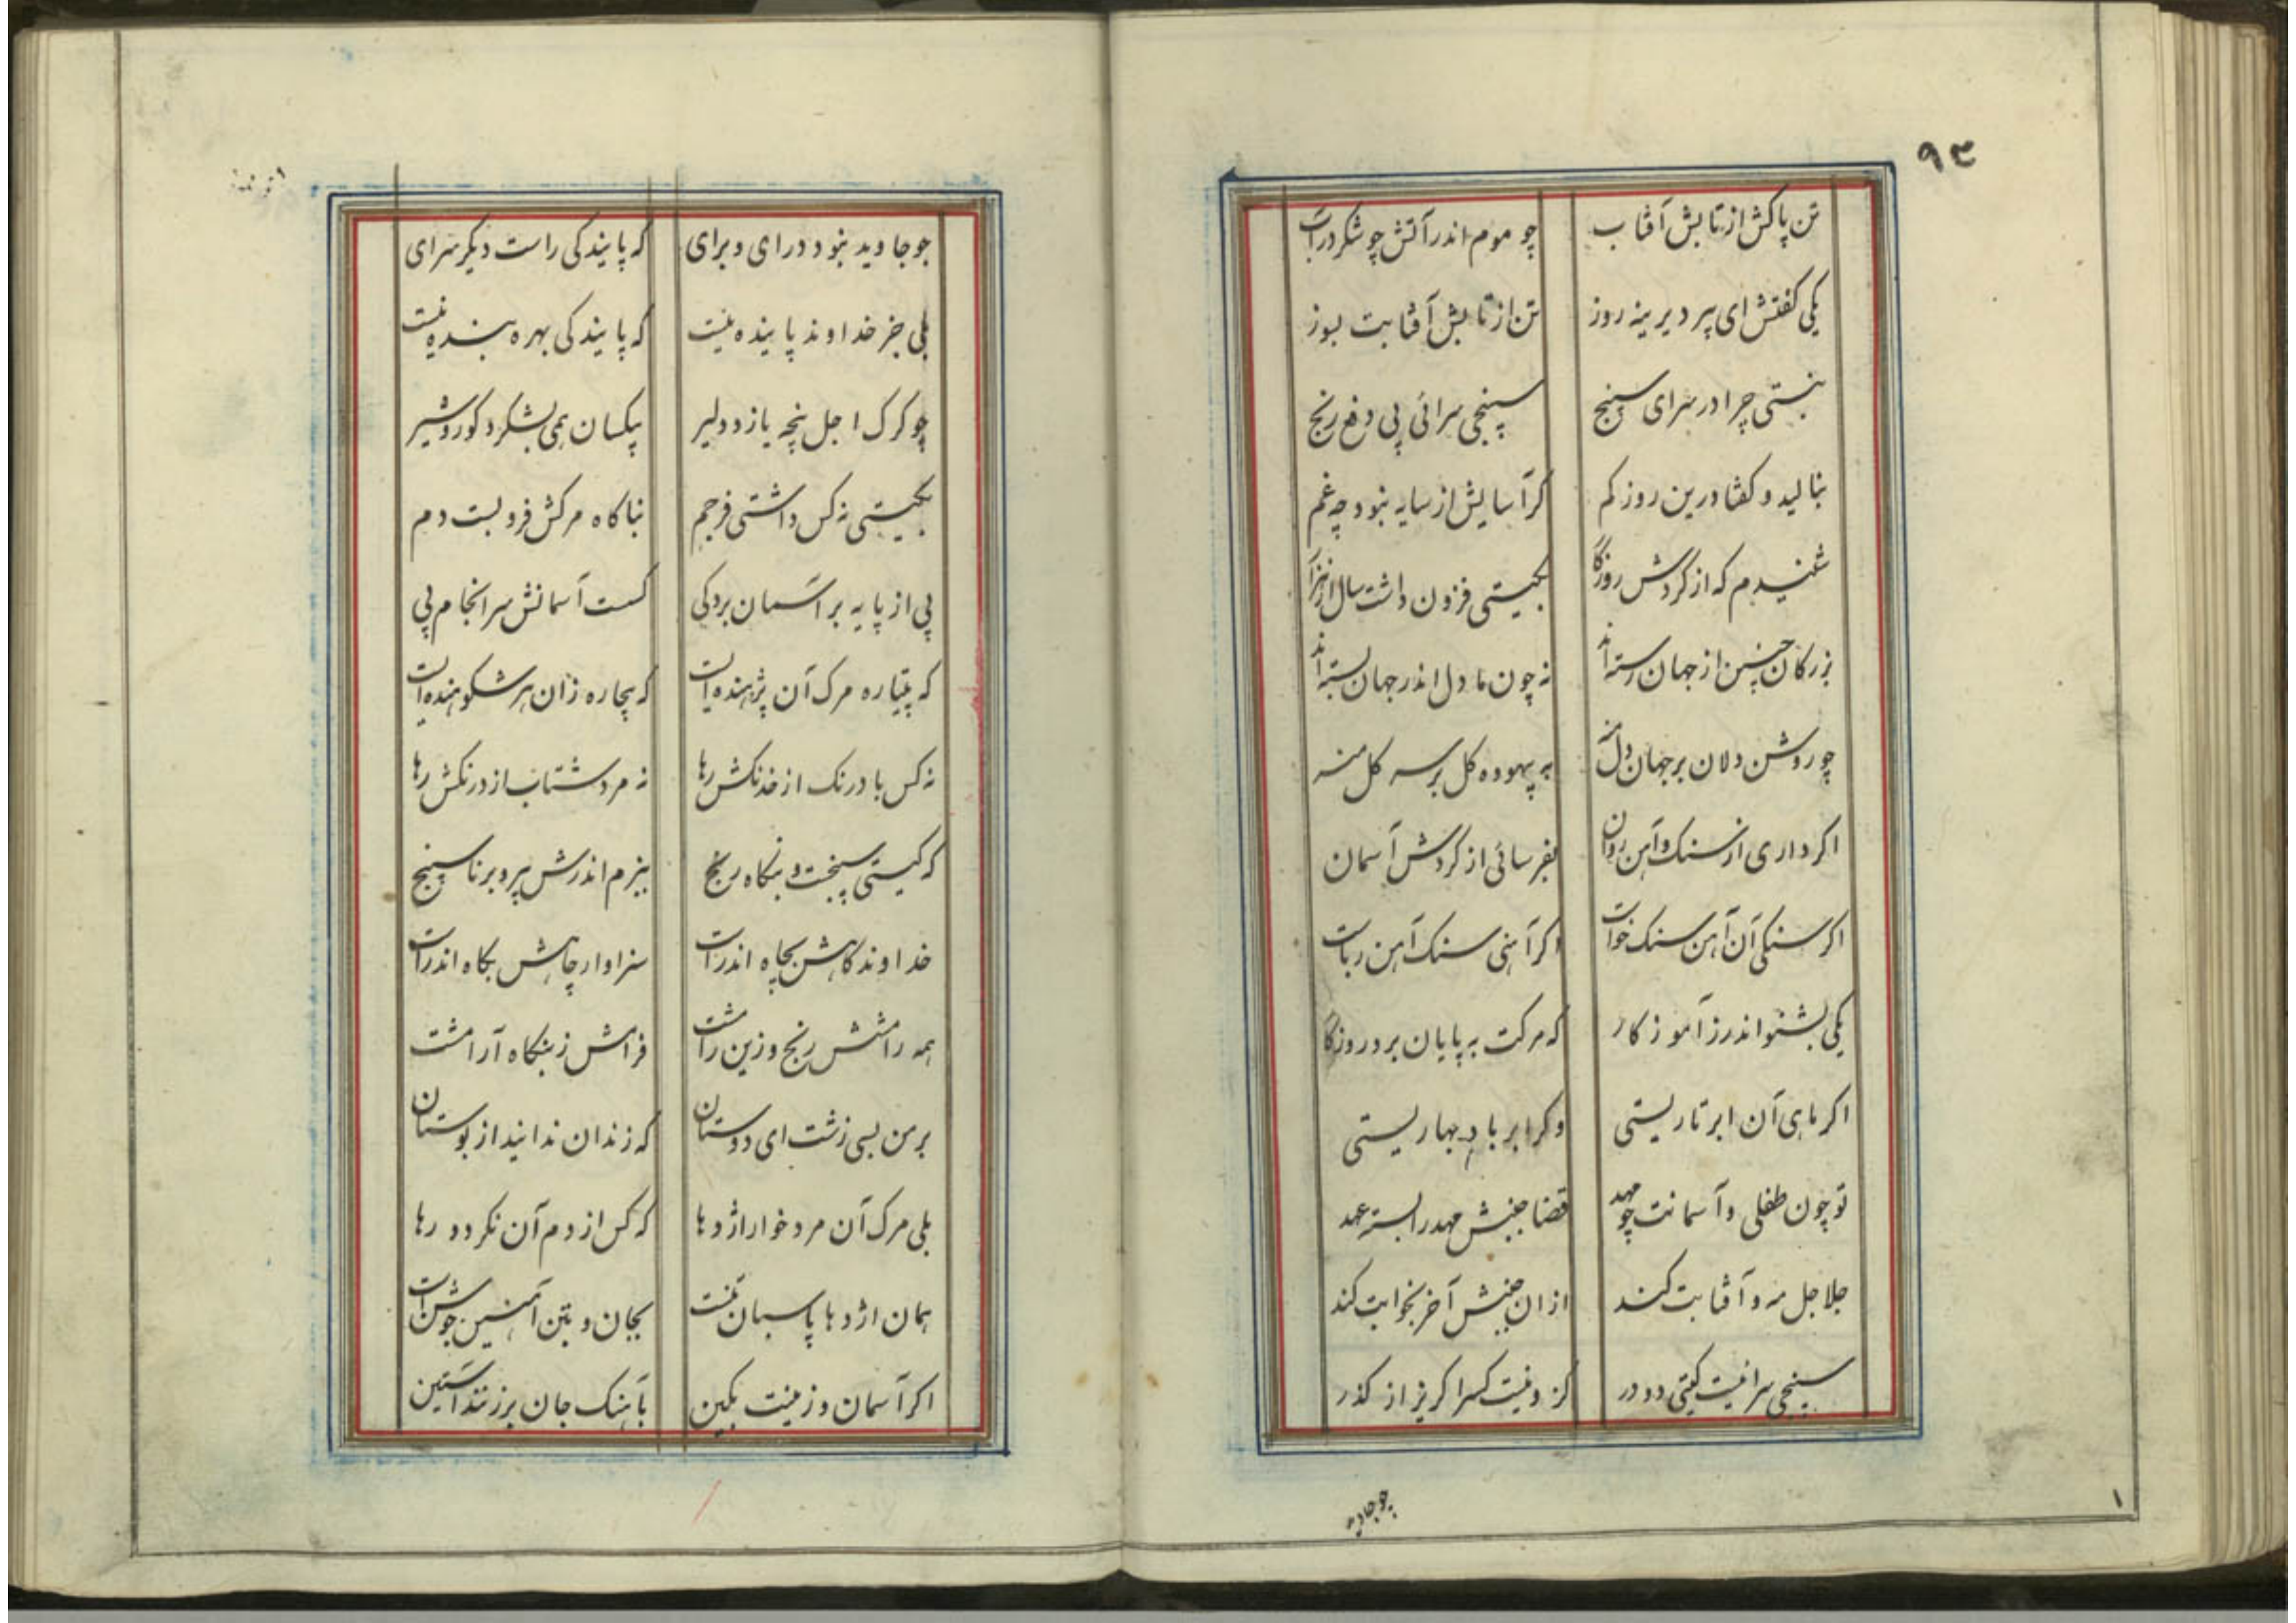 ۹۳
تن پاکش از تابش آفتاب چو موم اندر آتش چو شکر در آب
یکی گفتش ای پیر دیرینه روز تن از تابش آفتابت بسوز
نبستی چرا در سرای سپنج سپنجی سرائی پی دفع رنج
بنالید و کفتا درین روز کم کر آسایش از سایه نبود چه غم
شنیدم که از کردش روزکار بکیتی فزون داشت سال از هزار
بزرکان چنین از جهان رسته‌اند نه چون ما دل اندر جهان بسته‌اند
چو روشن دلان بر جهان دل منه به بیهوده کل بر سر کل منه
اکر داری از سنک و آهن روان بفرسائی از کردش آسمان
اکر سنکی آن آهن سنک خواست اکر آهنی سنک آهن رباست
یکی بشنو اندرز آموزکار که مرکت به پایان برد روزکار
اکر ماهی آن ابر تاریستی وکر ابر باد بهاریستی
تو چون طفلی و آسمانت چو مهد قضا جنبش مهد را بسته عهد
جلاجل مه و آفتابت کند از ان جنبش آخر بخوابت کند
سپنجی سرائیست کیتی دو در کز و نیست کس را کریز از کذر
چو جاوید
۱
چو جاوید نبود درای و برای که پایندکی راست دیکر سرای
بلی جز خداوند پاینده نیست که پایندکی بهره بنده نیست
چو کرک اجل پنجه یازد دلیر یکسان همی بشکرد کور و شیر
بکیتی نه کس داشتی فر جم بناکاه مرکش فرو بست دم
پی از پایه بر آسمان برد کی کسست آسمانش سرانجام پی
که پتیاره مرک آن پژهنده است که بیچاره زان هر شکوهنده است
نه کس با درنک از خدنکش رها نه مرد شتاب از درنکش رها
که کیتی سپنجست و بنکاه رنج ببزم اندرش پیر و برنا سپنج
خداوند کاهش بچاه اندرست سزاوار چاهش بکاه اندرست
همه رامشش رنج و زین رامشت فراهش ز بنکاه آرامشت
بر من بسی زشت ای دوستان که زندان ندانید از بوستان
بلی مرک آن مردخوار اژدها که کس از دم آن نکردد رها
همان اژدها پاسبان تنست بجان و بتن آهنین جوشن است
اکر آسمان و زمینت بکین بآهنک جان بر زنند آستین